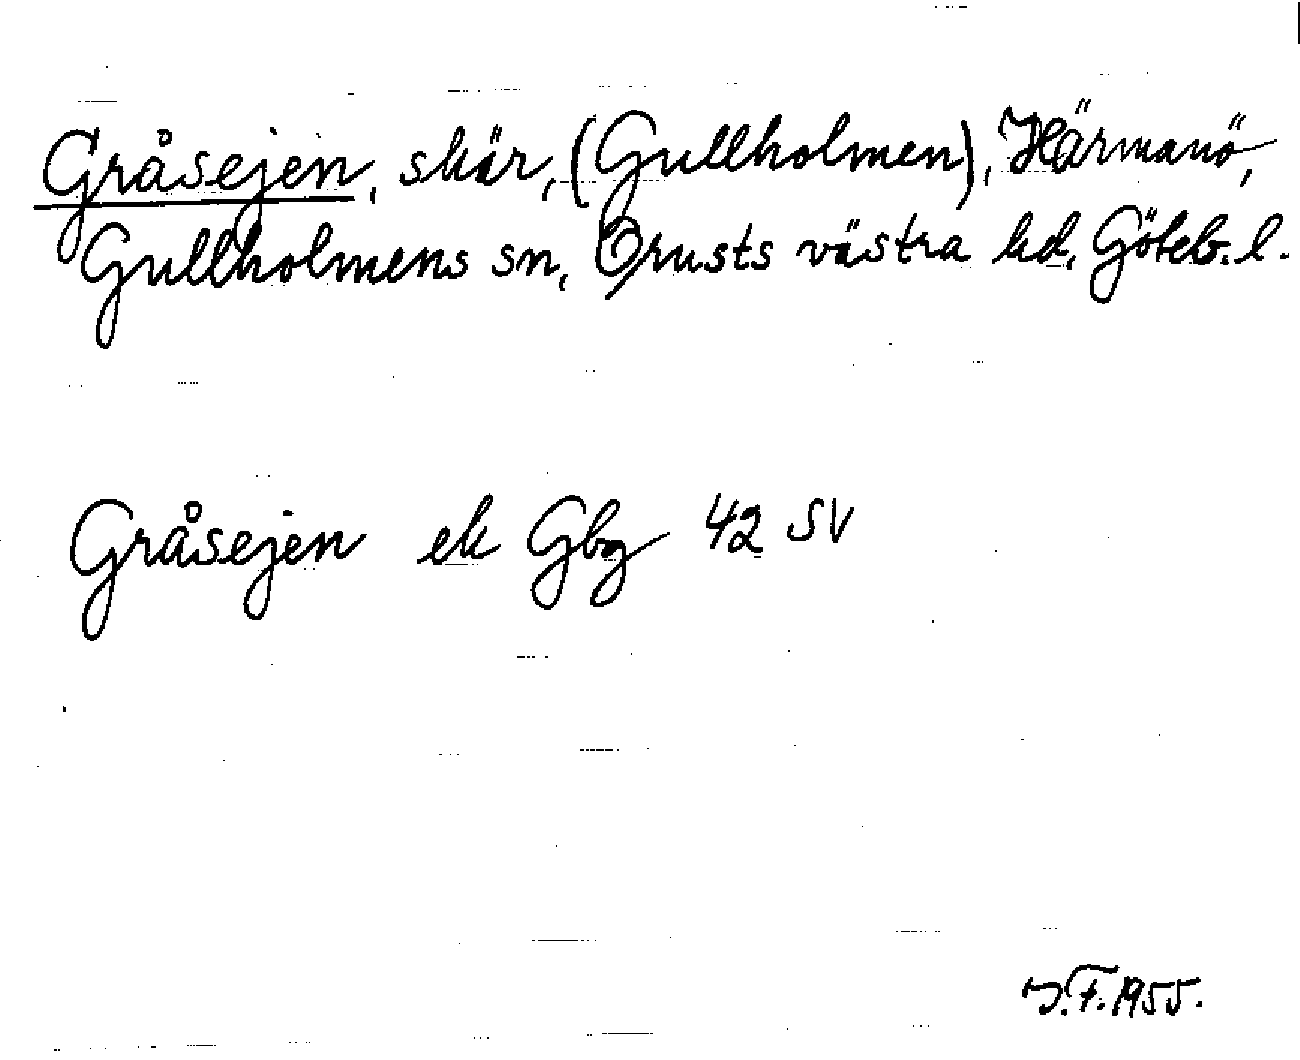 Gråsejen, skär, (Gullholmen), Härmanö,
Gullholmens sn, Orusts västra hd, Göteb. l.
Gråsejen ek Gbg 42 SV
J.F. 1955.